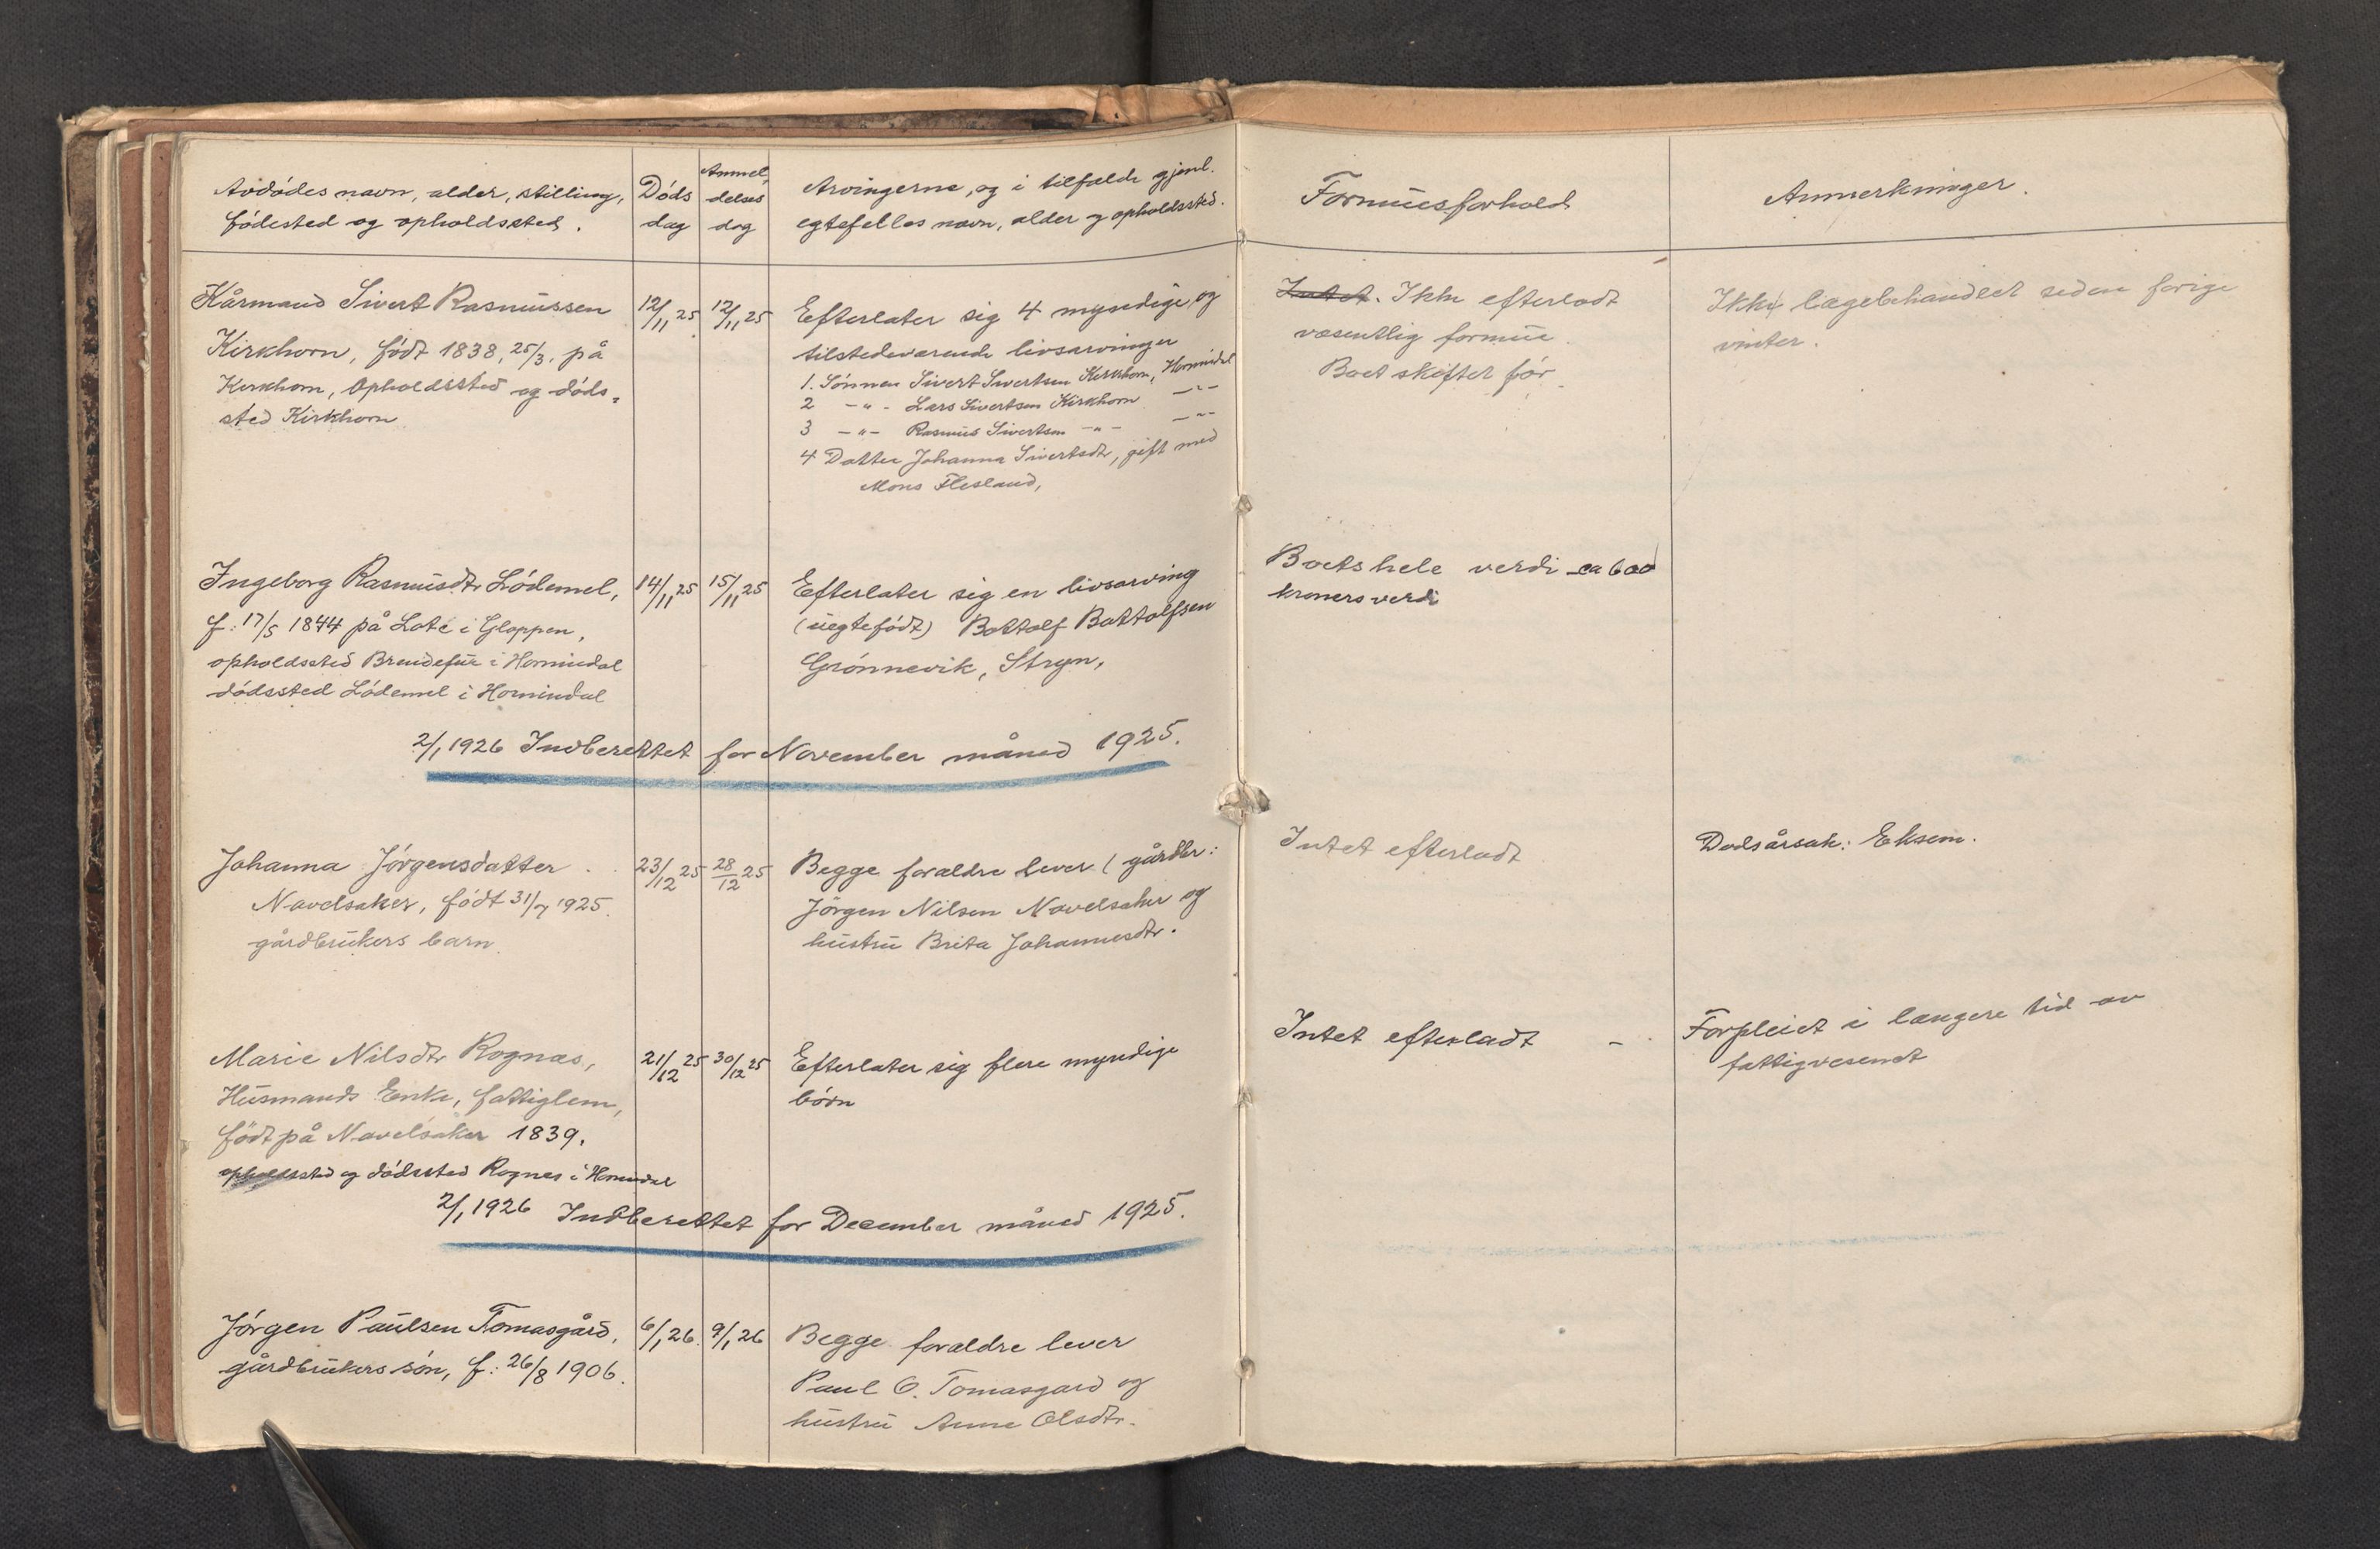 Avdödes navn, alder, stilling,
födested og opholdssted.
Döds
dag
Anmel,
delses
dag
Arvingerne, og i tilfælde gjenl.
egtefelles navn, alder og opholdssted.
Formuesforhold
Anmerkninger.
Kårmand Sivert Rasmussen
Kirkhorn, födt 1838, 25/3. på
Kirkhorn, Opholdssted og döds-
sted Kirkhorn
12/11 25
12/11 25
Efterlater sig 4 myndige og
tilstedeværende livsarvinger
1. Sönnen Sivert Sivertsen Kirkhorn, Hornindal
2 -"- Lars Sivertsen Kirkhorn -"-
3 -"- Rasmus Sivertsen -"- -"-
4 Datter Johanna Sivertsdtr, gift med
Mons Flesland,
Intet. Ikke efterladt
væsentlig formue.
Boet skiftet för.
Ikke lægebehandlet siden forige
vinter.
Ingeborg Rasmusdtr Lödemel,
f: 17/5 1844 på Lote i Gloppen,
opholdssted Brendefur i Hornindal
dödssted Lödemel i Hornindal
14/11 25
15/11 25
Efterlater sig en livsarving
(uegtefödt) Bottolf Bottolfsen
Grönnevik, Stryn,
Boets hele verdi ca 600
kroners verdi
2/1 1926 Indberettet for November måned 1925.
Johanna Jörgensdatter.
Navelsaker, födt 31/7 1925.
gårdbrukers barn.
23/12 25
28/12 25
Begge forældre lever (gårdbr:
Jörgen Nilsen Navelsaker og
hustru Brita Johannesdtr.
Intet efterladt
Dødsårsak: Eksem.
Marie Nilsdtr Rognæs,
Husmands Enke, fattiglem,
födt på Navelsaker 1839.
opholdssted og dödssted Rognes i Hornindal
21/12 25
30/12 25
Efterlater sig flere myndige
börn
Intet efterladt -
Forpleiet i længere tid av
fattigvesenet
2/1 1926 Indberettet for December måned 1925.
Jörgen Paulsen Tomasgård,
gårdbrukers sön, f: 26/8 1906.
6/1 26.
9/1 26
Begge forældre lever
Paul O. Tomasgard og
hustru Anne Olsdtr.